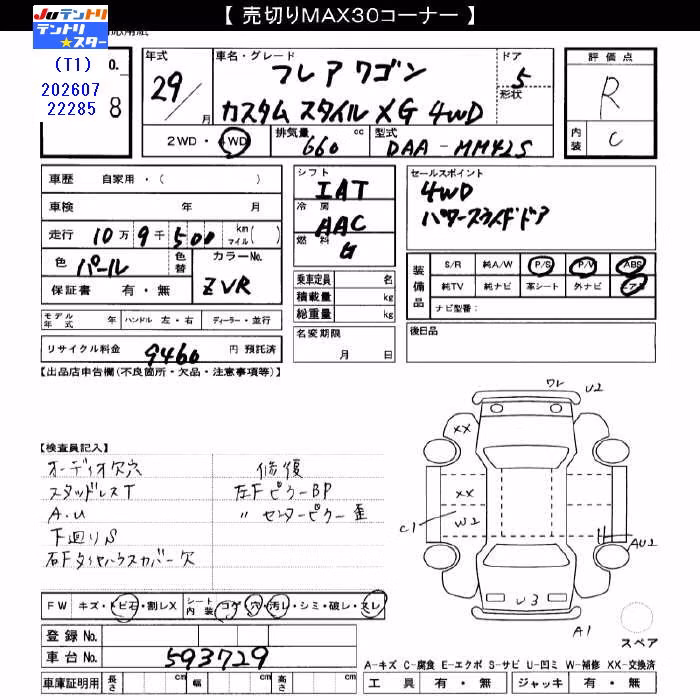 【 売切りMAX30コーナー 】
Juテントリ
テントリ
★スター
(T1)
202607
22285
O.
8
年式
29/
月
車名・グレード
フレア ワゴン
カスタム スタイル XG 4WD
ドア
5
形状
2WD・4WD
排気量
660
cc
型式
DAA-MM42S
評価点
R
内装
C
車歴 自家用・( )
車検 年 月
走行 10万9千500 km マイル( )
色 パール 色替
カラーNo.
ZVR
保証書 有・無
モデル年式 年 ハンドル 左・右 ディーラー・並行
リサイクル料金 9460 円 預託済
シフト
IAT
冷房
AAC
燃料
G
乗車定員 名
積載量 kg
総重量 kg
名変期限
月 日
セールスポイント
4WD
パワースライドドア
装備品
S/R 純A/W P/S P/W ABS
純TV 純ナビ 革シート 外ナビ エアB
ナビ型番:
後日品
【出品店申告欄(不良箇所・欠品・注意事項等)】
【検査員記入】
オーディオ欠穴
スタッドレスT
A・U
下廻りS
右Fタイヤハウスカバー欠
修復
左FピラーBP
〃 センターピラー歪
ワレ
U2
XX
XX
W2
C1
AU2
U3
A1
スペア
FW キズ・トビ石・割レX
シート内装 コゲ・穴・汚レ・シミ・破レ・スレ
登録No.
車台No. 593729
車庫証明用 長さ cm 幅 cm 高さ cm
A-キズ C-腐食 E-エクボ S-サビ U-凹ミ W-補修 XX-交換済
工具 有・無 ジャッキ 有・無